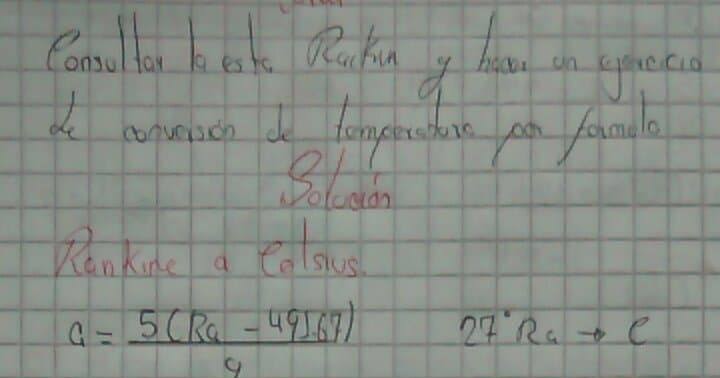 Consultar la esta Rackin y hacer un ejercicio
de conversión de temperatura por formula
Solución
Rankine a Celsius.
a = 5(Ra - 491.67) / 9 27° Ra → C